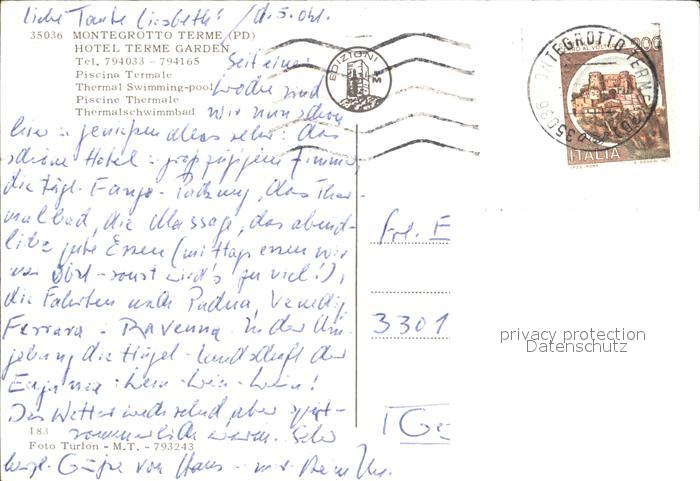 Liebe Tante Lisbeth! / d. 5. Okt.
35036 MONTEGROTTO TERME (PD)
HOTEL TERME GARDEN
Tel. 794033 - 794165
Piscina Termale
Thermal Swimming-pool
Piscine Thermale
Thermalschwimmbad
Seit einer
Woche sind
wir nun schon
hier u. genießen alles sehr: das
schöne Hotel u. großzügigem Zimmer,
die tägl. Fango-Packung, das Ther-
malbad, die Massage, das abend-
liche gute Essen (mittags essen wir
nur Obst - sonst wird's zu viel!),
die Fahrten nach Padua, Venedig,
Ferrara u. Ravenna. In der Um-
gebung die Hügel-Landschaft der
Euganea: Wein-Wein-Wein!
Das Wetter wechselnd aber spät-
sommerlich warm. Sehr
herzl. Grüße von Hans u.
183
Foto Turlon - M.T. - 793243
EDIZIONI
MONTEGROTTO TERME
35036
200
ITALIA
Frl. E
3301
privacy protection
Datenschutz